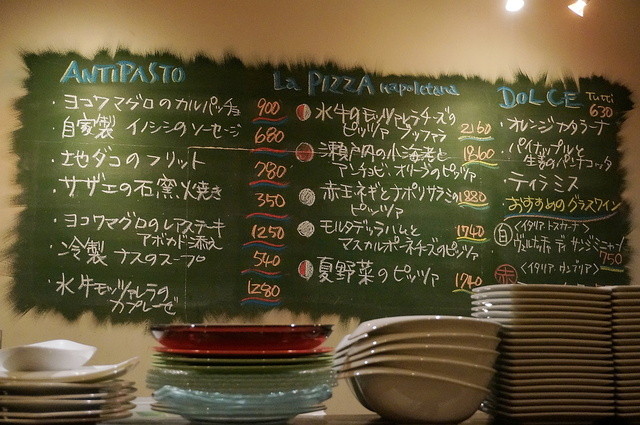 ANTIPASTO
・ヨコワマグロのカルパッチョ 900
・自家製 イノシシのソーセージ 680
・地ダコのフリット 780
・サザエの石窯火焼き 350
・ヨコワマグロのレアステーキ
アボカド添え 1250
・冷製 ナスのスープ 540
・水牛モッツァレラの
カプレーゼ 1280
La PIZZA napoletana
水牛のモッツァレラチーズの
ピッツァ ブッファラ 2160
瀬戸内の小海老と
アンチョビ・オリーブのピッツァ 1860
赤玉ネギとナポリサラミの
ピッツァ 1880
モルタデッラハムと
マスカルポーネチーズのピッツァ 1740
夏野菜のピッツァ 1740
DOLCE Tutti 630
・オレンジカタラーナ
・パイナップルと
生姜のパンナコッタ
・ティラミス
おすすめのグラスワイン
白 〈イタリア トスカーナ〉
ヴェルナッチャ ディ サンジミニャーノ 750
赤 〈イタリア ウンブリア〉